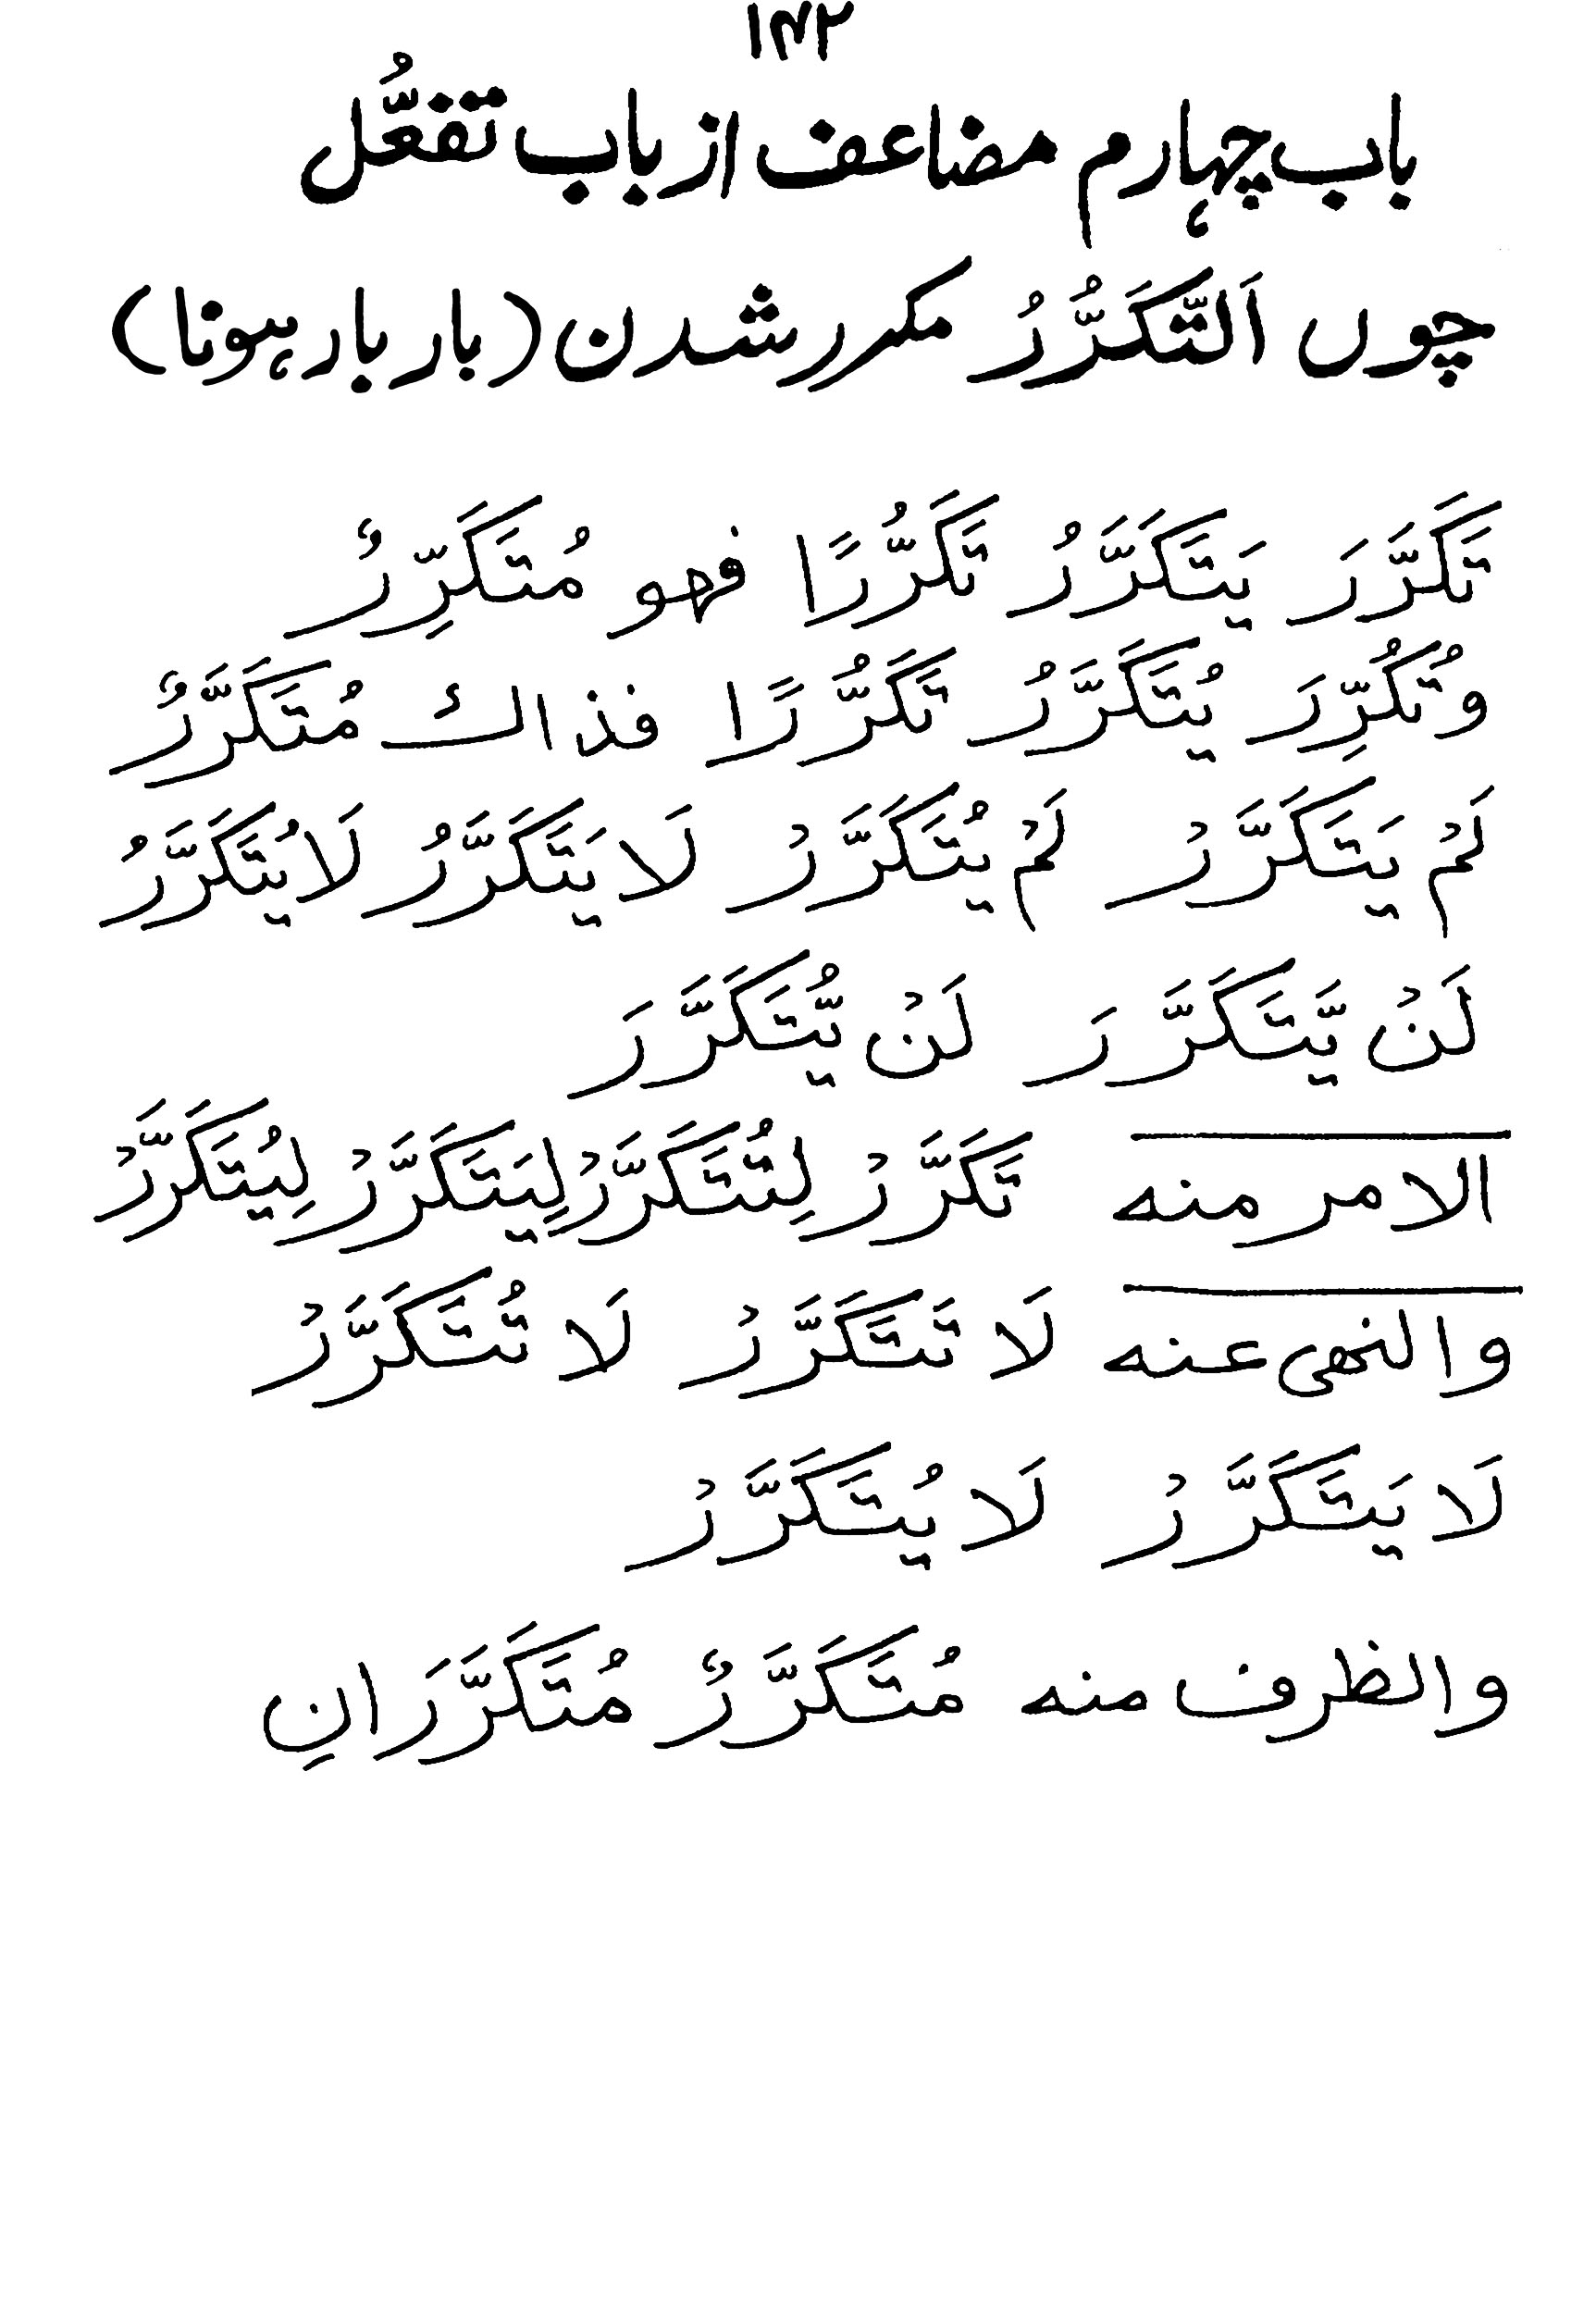 ۱۴۲
باب چہارم مضاعف از باب تفعُّل
چوں اَلتَّكَرُّرُ مکرر شدن (بار بار ہونا)
تَكَرَّرَ يَتَكَرَّرُ تَكَرُّرًا فهو مُتَكَرِّرٌ
وَتُكُرِّرَ يُتَكَرَّرُ تَكَرُّرًا فذاك مُتَكَرَّرٌ
لَمْ يَتَكَرَّرْ لَمْ يُتَكَرَّرْ لَا يَتَكَرَّرُ لَا يُتَكَرَّرُ
لَنْ يَّتَكَرَّرَ لَنْ يُّتَكَرَّرَ
الامر منه تَكَرَّرْ لِتُتَكَرَّرْ لِيَتَكَرَّرْ لِيُتَكَرَّرْ
والنهى عنه لَا تَتَكَرَّرْ لَا تُتَكَرَّرْ
لَا يَتَكَرَّرْ لَا يُتَكَرَّرْ
والظرف منه مُتَكَرَّرٌ مُتَكَرَّرَانِ